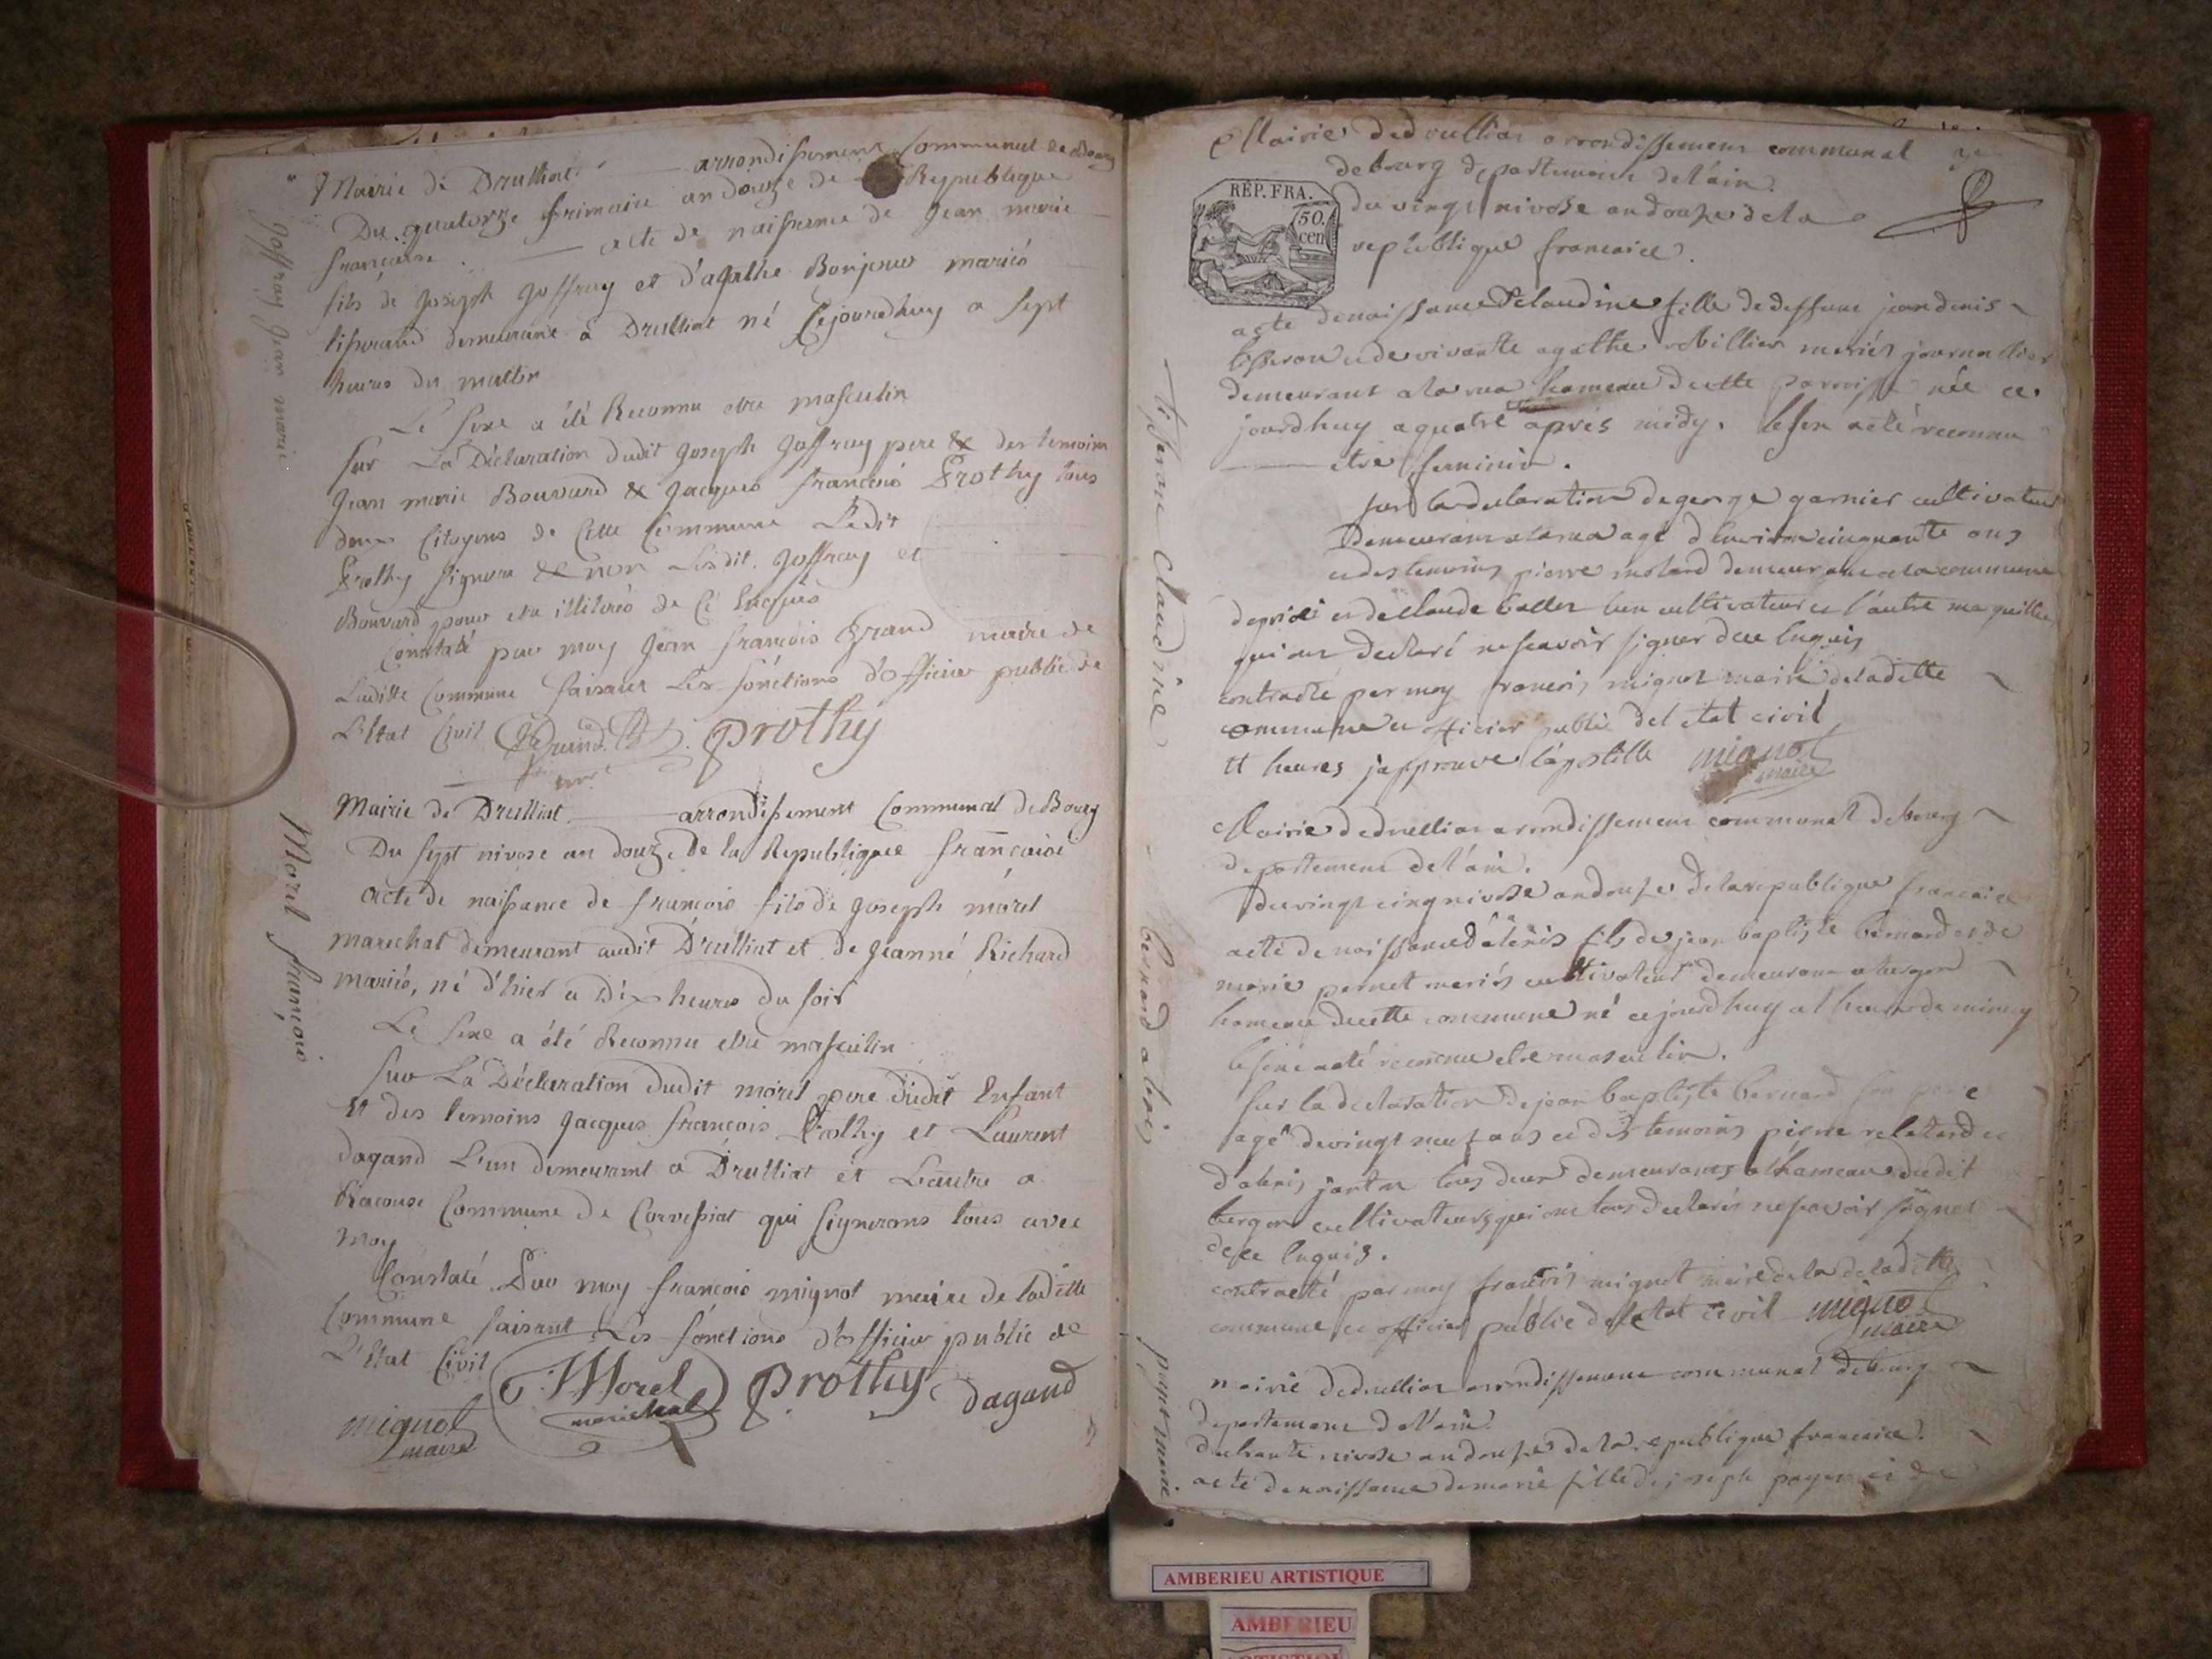 Mairie de Drulliat arrondissement Communal de Bourg
Du quatorze frimaire an douze de la Republique
françaisse. acte de naissance de Jean marie
fils de Joseph Joffray et d'agathe Bonjour mariés
tisserand demeurant à Drulliat né Cejourdhuy a sept
heures du mattin
Le sexe a été Reconnu etre masculin
sur La Déclaration dudit Joseph Joffray pere & des temoins
Jean marie Bouvard & Jacques françois Prothy tous
deux Citoyens de Cette Commune Ledit
Prothy signera & non Lesdit Joffray et
Bouvard pour etre illiterés de Ce Enquis
Constaté par moy Jean françois Grand maire de
Laditte Commune faisant Les fonctions d'officier public de
L'Etat Civil Grand prothy
Joffray Jean marie
Mairie de Drulliat arrondissement Communal de Bourg
Du sept nivose an douze de la Republique françaisse
acte de naissance de françois fils de Joseph morel
marechal demeurant audit Drulliat et de Jeanne Richard
mariés, né d'hier a Dix heures du soir
Le sexe a été Reconnu etre masculin
sur La Déclaration dudit morel pere dudit Enfant
Et des temoins Jacques françois Prothy et Laurent
dagand L'un demeurant a Drulliat et L'autre a
Racouse Commune de Corvessiat qui signerons tous avec
moy
Constaté Par moy françois mignot maire de laditte
Commune faisant Les fonctions d'officier public de
L'Etat Civil
Morel prothy dagand
marechal
mignot
maire
Morel françois
Mairie dedrulliat arrondissement communal
debourg departement delain.
RÉP. FRA.
50.
cen
du vingt nivose an douze de la
republique francaice.
acte denaissance declaudine fille dedeffunt jean denis
tisseron et de vivante agathe robillier mariés journallier
demeurant alarua hameau decette parroisse née ce
jourdhuy aquatre apres midy. le sex a eté reconnu
etre feminin.
sur la declaration de george garnier cultivateur
Demeurant alarua agé denviron cinquante ans
et des temoins pierre molard demeurant ala commune
de et de Claude l'un cultivateur et l'autre
qui ont declaré ne scavoir signer de ce enquis
contracté par moy francois mignot maire deladitte
commune et officier public del etat civil
tt heures japprouve lapostille mignot
maire
tisseron claudine
Mairie dedrulliat arrondissement communal debourg
departement delain.
du vingt cinq nivose an douze delarepublique francaice
acte denaissance daléxis fils de jean baptiste bernard et de
marie pernet mariés cultivateur demeurant abergon
hameau decette commune né cejourdhuy a l heure de minuy
le sexe aeté reconnu etre masculin.
sur la declaration de jean baptiste bernard son pere
agé devingt neuf ans et des temoins pierre et
dalexis tous deux demeurants alhameau dudit
bergon cultivateurs qui ont tous declarés ne savoir signer
de ce enquis.
contracté par moy francois mignot maire dela deladitte
commune et officier public de letat civil mignot
maire
bernard alexis
mairie dedrulliat arrondissement communal debourg
departement delain.
dutrente nivose an douze dela republique francaice.
acte denaissance demarie fille de joseph payet et de
payet marie
AMBERIEU ARTISTIQUE
AMBERIEU
ARTISTIQUE